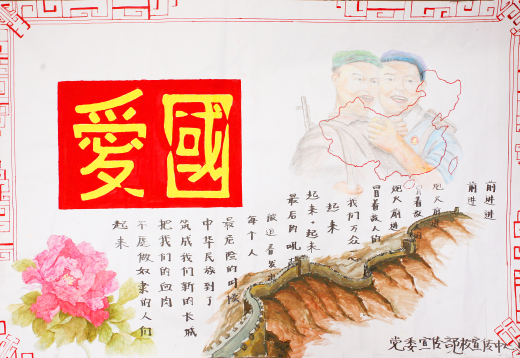 愛國
起来
不愿做奴隶的人们
把我们的血肉
筑成我们新的长城
中华民族到了
最危险的时候
每个人
被迫着发出
最后的吼声
起来·起来
起来
我们万众一心
冒着敌人的
炮火前进
冒着敌
炮火前进
前进
前进进
党委宣传部校宣传中心